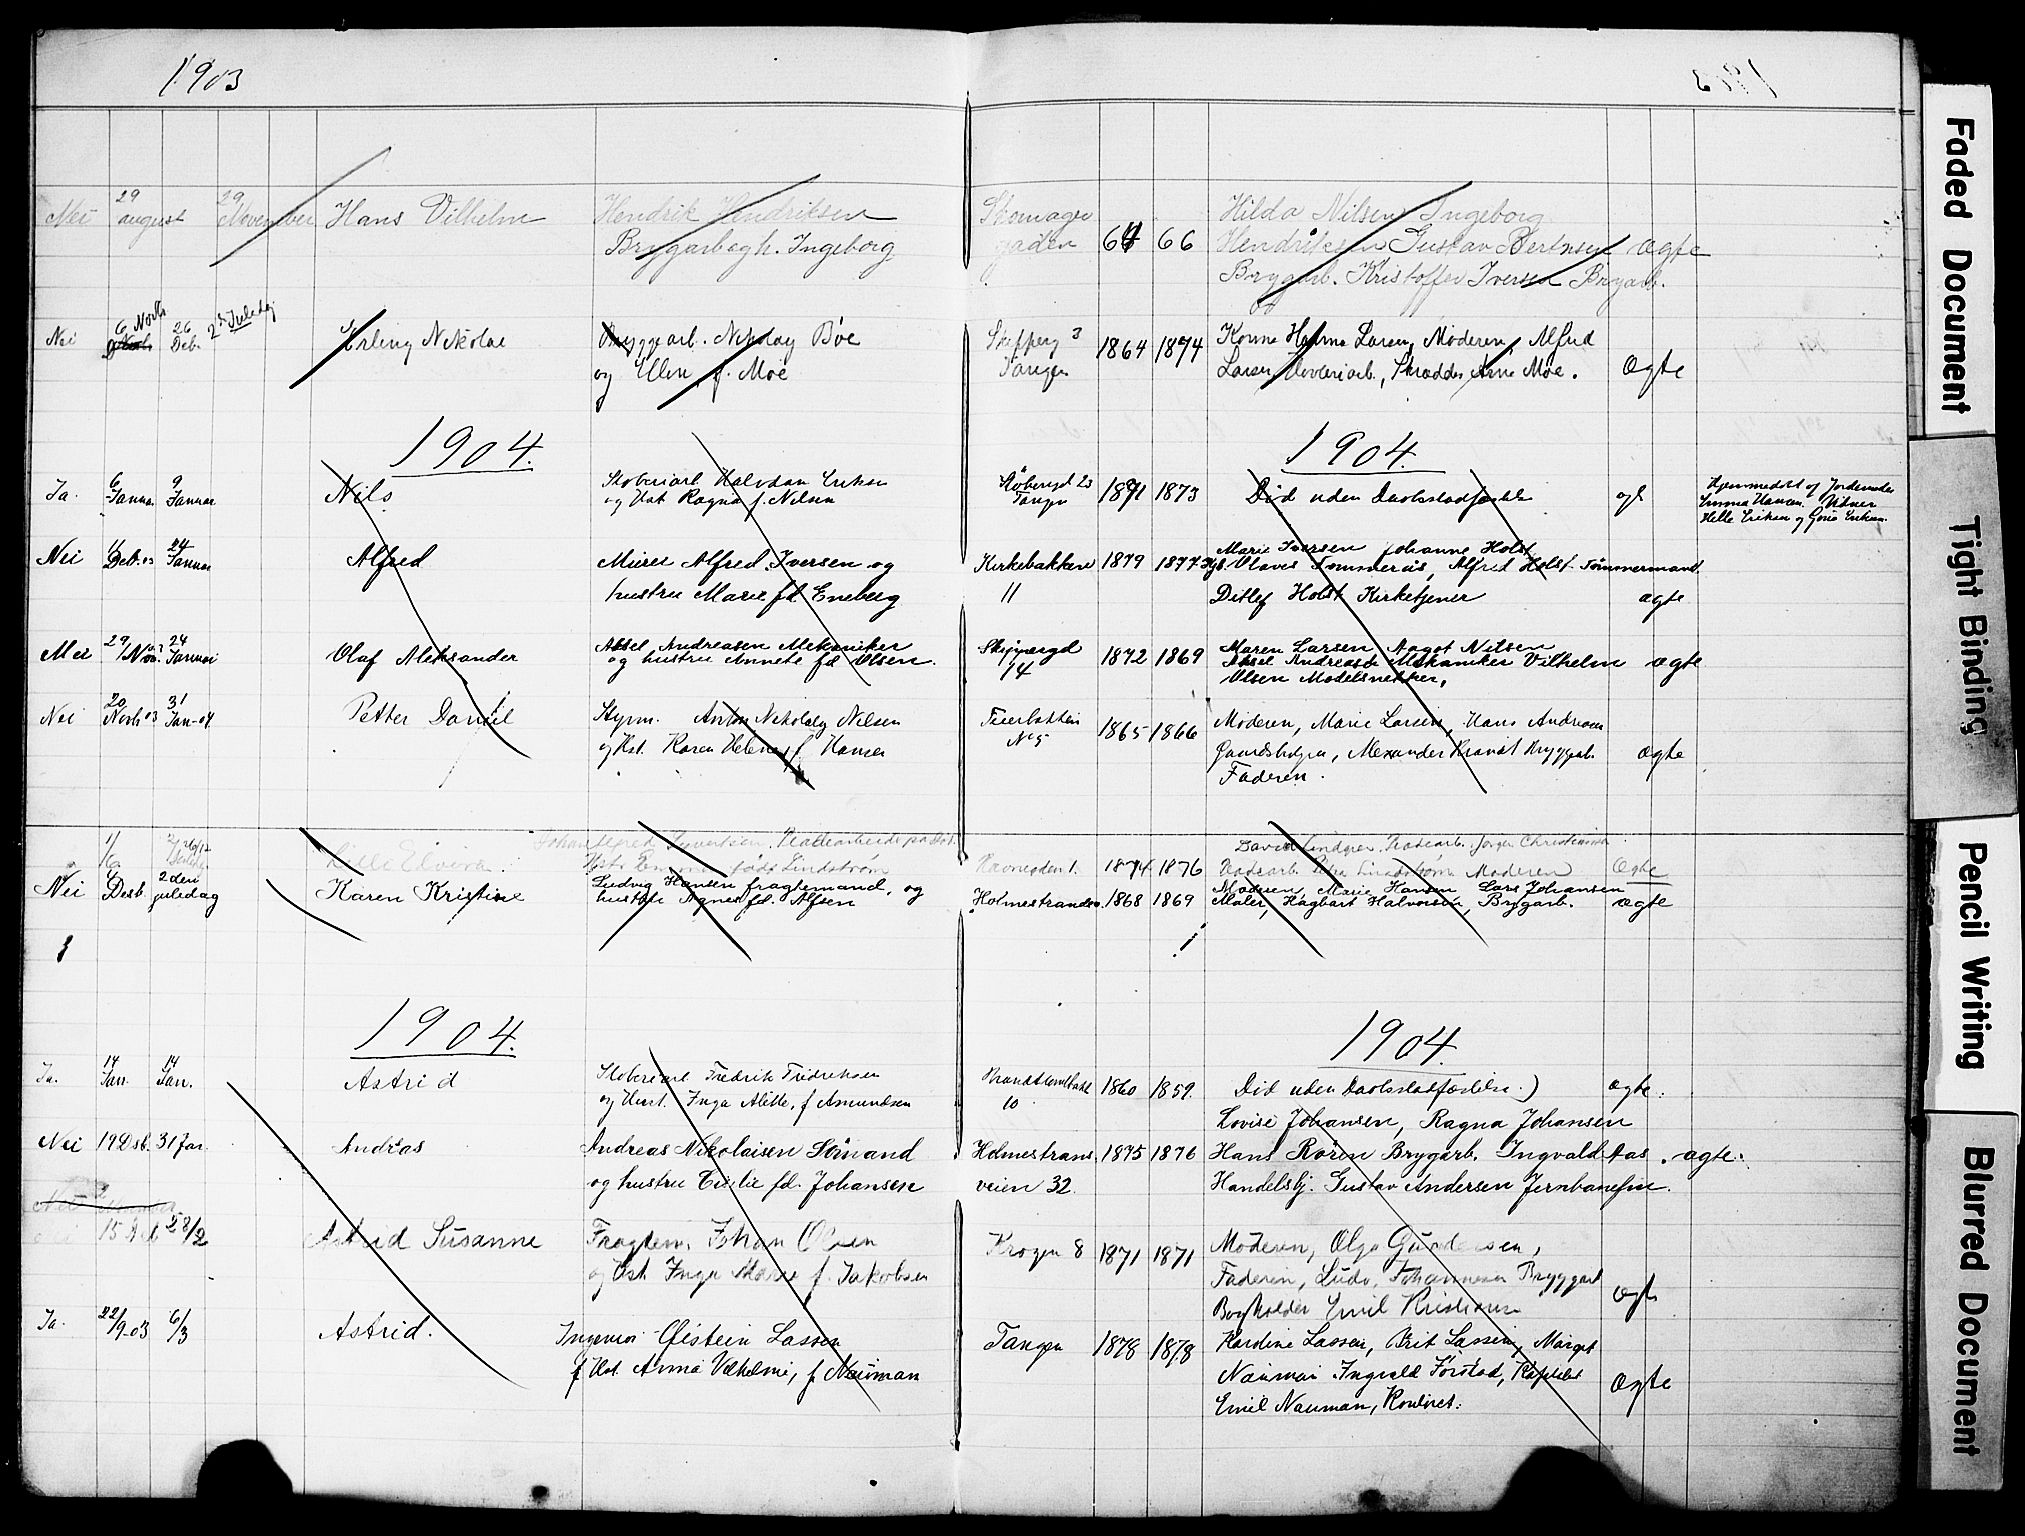 1903
Nei
29 august
29 November
Hans Vilhelm
Hendrik Hendriksen
Bryggarb og h. Ingeborg
Skomager
gaden
64 66
Hilda Nilsen Ingeborg
Hendriksen Gustav Berntsen
Bryggarb. Kristoffer Iversen Brygarb.
Ægte
Nei
6 Novb
26 Deb.
2den Juledag
Erling Nikolai
Bryggearb. Nikolay Böe
og Ellen f. Moe
Skipperg 3
Tangen
1864 1874
Larsen, Moderen, Alfred
Larsen, Skrædder Arne Moe.
Ægte
1904.
1904.
Ja.
6 Januar
9 Januar
Nils
Støberiarb Halvdan Eriksen
og Hst Ragna f. Nilsen
Støberigd 23
Tangen
1871 1873
Död uden Daabsstadfæstelse
egt
Hjemmedøbt af Jordemoder
Emma Hansen. Vidner
Helle Eriksen og Eriksen
Nei
11 Deb. 03
24 Januar
Alfred
Murer Alfred Iversen og
hustru Marie fd. Eneberg
Kirkebakken
11
1879 1877
Marie Iversen Johanne Holst
Olaves Tommerås, Alfred Holst Tömmermand.
Ditlef Holst Kirketjener
ægte
Nei
29/Nov.
24 Januar
Olaf Aleksander
Aksel Andreasen Mekaniker
og hustru Annete fd Olsen.
Skippergd
14
1872 1869
Maren Larsen Aagot Nilsen
Aksel Andreasen Mekaniker Vilhelm
Olsen Modelsnekker,
ægte
Nei
20 Novb 03
31 Jan-04
Petter Daniel
Styrm. Anton Nikolay Nilsen
og Hst. Karen Helene, f. Hansen
No 5
1865 1866
Moderen, Marie Larsen, Hans Andreasen
Gaardsbruger, Alexander Bryggearb.
Faderen.
ægte
1/6
Lilli Elvira
Johan Alfred Syvertsen,
Hst. Emma född Lindström
Havnegden 1.
1874 1876
David Lindgren, Pladearb. Jørgen Christiansen
Pladearb. Lindstrøm Moderen
Ægte
Nei
6 Desb.
2den juledag
Karen Kristine
Ludvig Hansen fragtemand, og
hustru Agnes fd. Alfsen
Holmestrandsv.
1868 1869
Moderen, Marie Hansen Lars Johansen
Maler, Hagbart Halvorsen, Brygarb.
ægte
1904.
1904.
Ja.
14 Jan.
14 Jan.
Astrid
Støberiarb Fredrik Fredriksen
og Hust. Inga Alette, f Amundsen
10
1860 1859.
Död uden Daabsstadfæstelse.)
ægte.
Nei
19 Dsb.
31 Jan.
Andreas
Andreas Nikolaisen Sömand
og hustru Cecilie fd. Johansen
Holmestrans.
veien 32.
1875 1876
Lovise Johansen, Ragna Johansen
Hans Rören Brygarb. Ingvald Aas
Handelsbj. Gustav Andersen Jernbanefm.
ægte.
15
28/2
Astrid Susanne
Fragtem. Johan Olsen
og Hst. Inger Marie f. Jakobsen
Krogen 8
1871 1871
Moderen, Olga Gundersen,
Faderen, Ludv. Johannesen Bryggarb
Bogholder Emil Kristiansen
Ægte
Ja.
22/9-03
6/3
Astrid.
Ingeniør Øistein Lassen
f Hst. Anna Vilhelmine, f Nauman
Tangen
1878 1878
Kardine Lassen, Brit Lassen, Marget
Nauman Ingvald Førstad, Kaptein
Emil Nauman, Kontorist.
Ægte
Faded Document
Tight Binding
Pencil Writing
Blurred Document